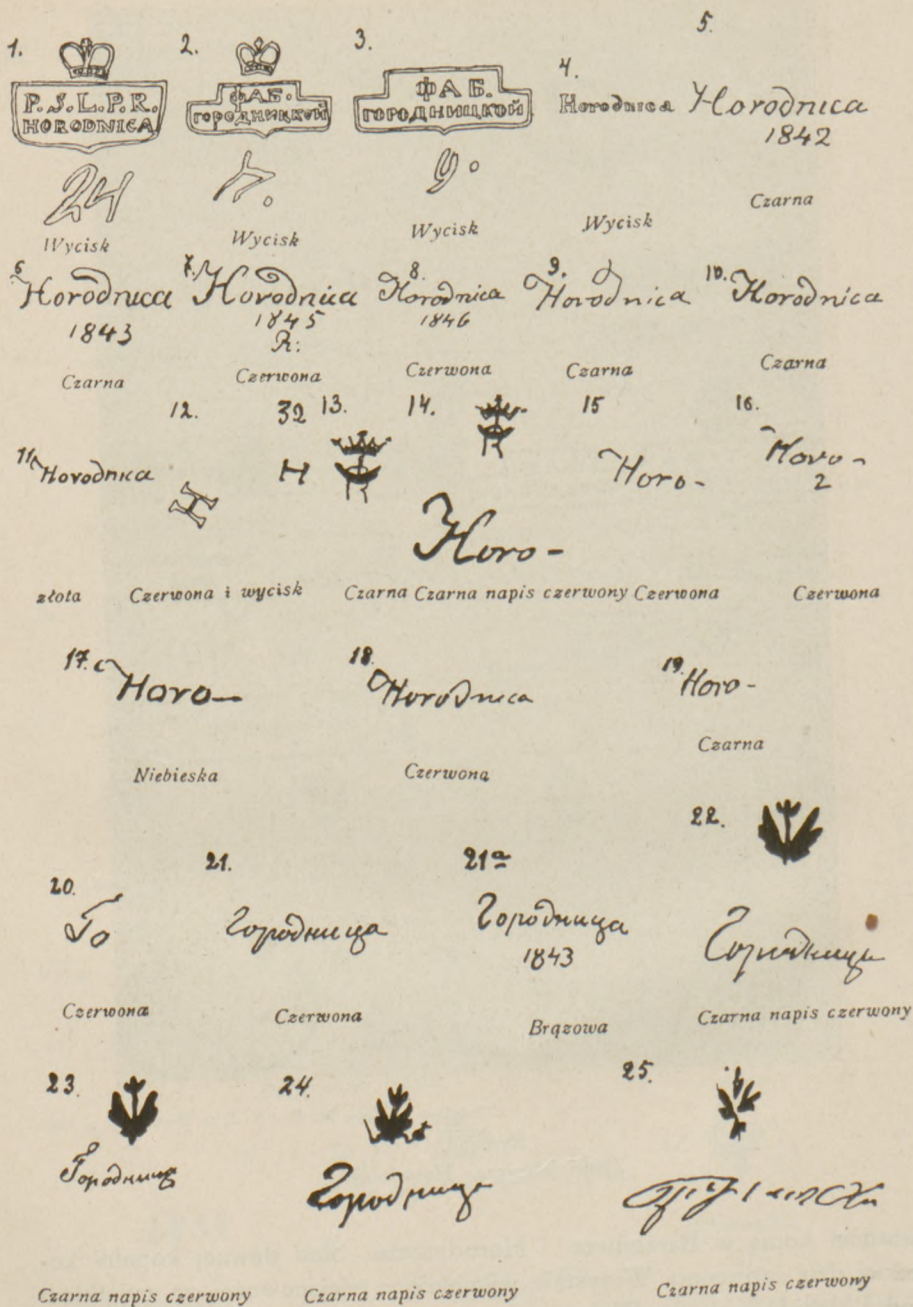 1.
P.J.L.P.R.
HORODNICA
24
Wycisk
2.
ФАБ.
ГОРОДНИЦКОЙ
Wycisk
3.
ФАБ.
ГОРОДНИЦКОЙ
9.
Wycisk
4.
Horodnica
Wycisk
5.
Horodnica
1842
Czarna
6
Horodnica
1843
Czarna
7.
Horodnica
1845
R:
Czerwona
8.
Horodnica
1846
Czerwona
9.
Horodnica
Czarna
10.
Horodnica
Czarna
11
Horodnica
złota
12.
H
32
H
Czerwona i wycisk
13.
Czarna
14.
Horo-
Czarna napis czerwony
15
Horo-
Czerwona
16.
Horo-
2
Czerwona
17.
Horo-
Niebieska
18.
Horodnica
Czerwona
19.
Horo-
Czarna
20.
Го
Czerwona
21.
Городница
Czerwona
21a
Городница
1843
Brązowa
22.
Городница
Czarna napis czerwony
23.
Городница
Czarna napis czerwony
24.
Городница
Czarna napis czerwony
25.
Czarna napis czerwony